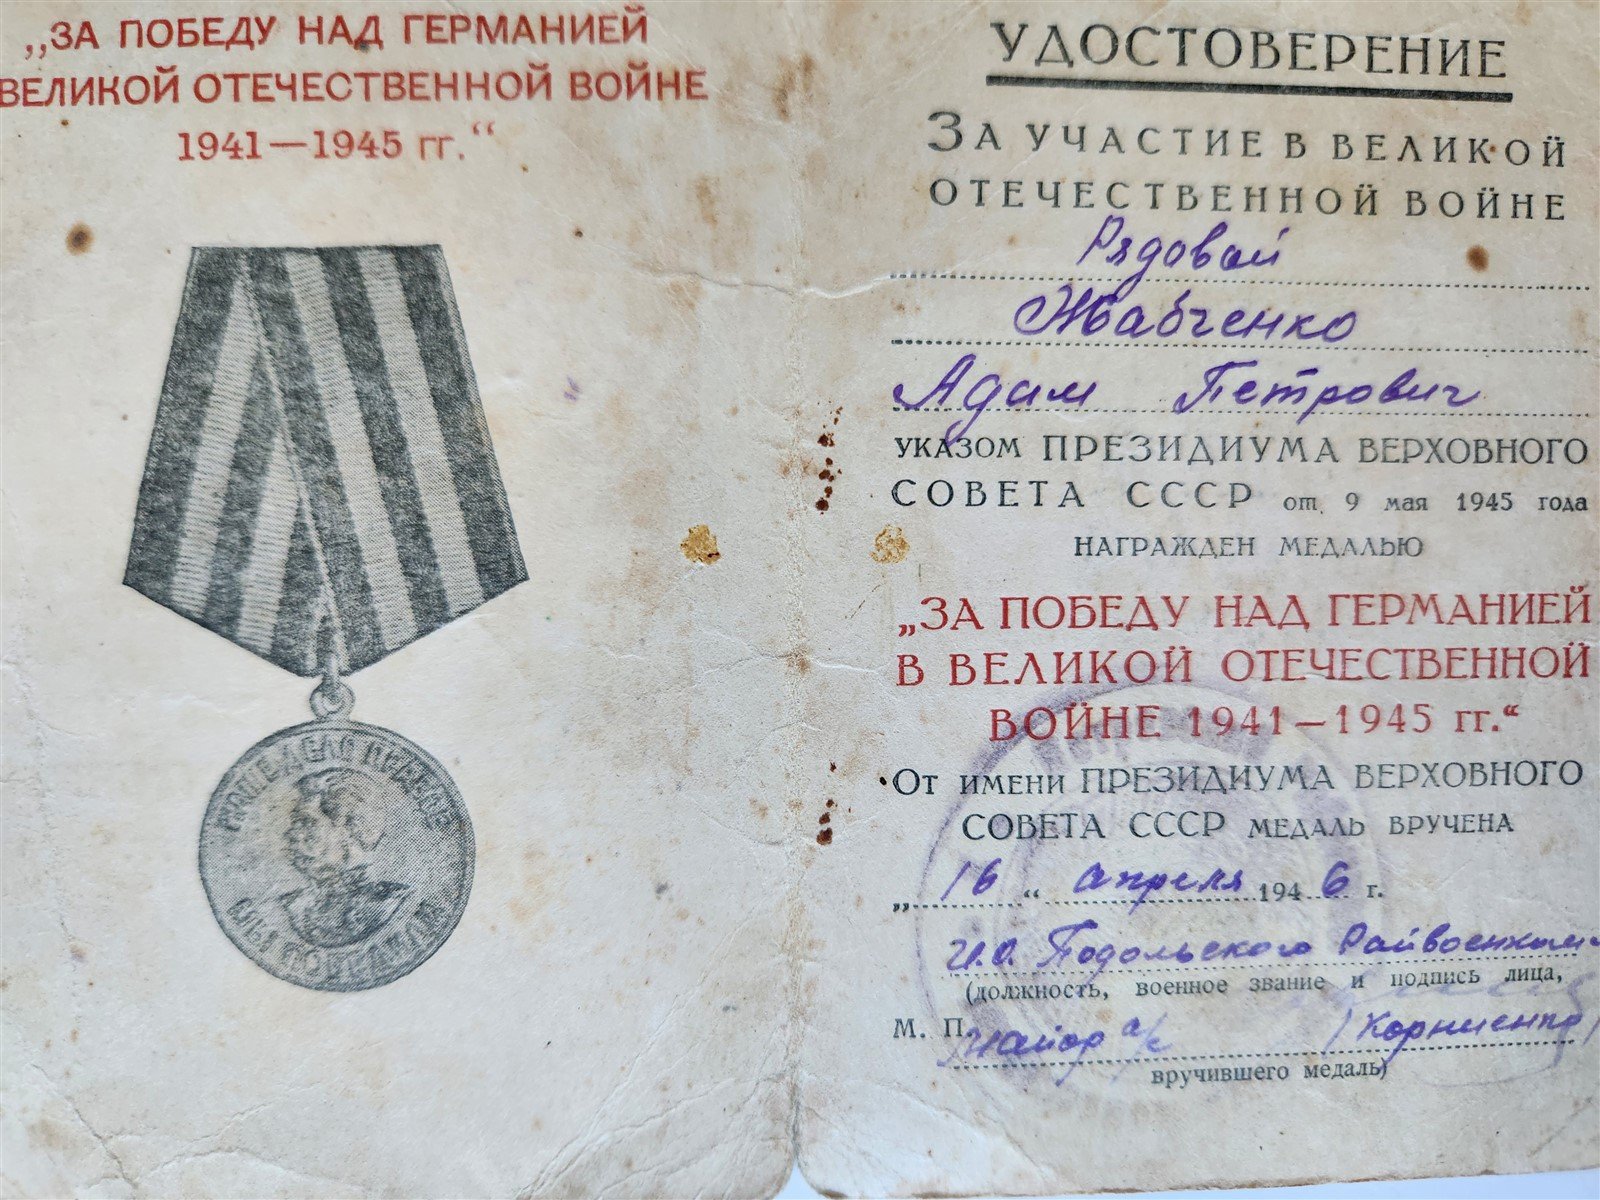 „ЗА ПОБЕДУ НАД ГЕРМАНИЕЙ
ВЕЛИКОЙ ОТЕЧЕСТВЕННОЙ ВОЙНЕ
1941—1945 гг.“
НАШЕ ДЕЛО ПРАВОЕ
МЫ ПОБЕДИЛИ
УДОСТОВЕРЕНИЕ
ЗА УЧАСТИЕ В ВЕЛИКОЙ
ОТЕЧЕСТВЕННОЙ ВОЙНЕ
Рядовой
Жабченко
Адам Петрович
УКАЗОМ ПРЕЗИДИУМА ВЕРХОВНОГО
СОВЕТА СССР от 9 мая 1945 года
НАГРАЖДЕН МЕДАЛЬЮ
„ЗА ПОБЕДУ НАД ГЕРМАНИЕЙ
В ВЕЛИКОЙ ОТЕЧЕСТВЕННОЙ
ВОЙНЕ 1941—1945 гг.“
ОТ ИМЕНИ ПРЕЗИДИУМА ВЕРХОВНОГО
СОВЕТА СССР МЕДАЛЬ ВРУЧЕНА
„16“ апреля 1946 г.
И.О. Подольского Райвоенком
(должность, военное звание и подпись лица,
М. П. майор а/с /Корниенко/
вручившего медаль)